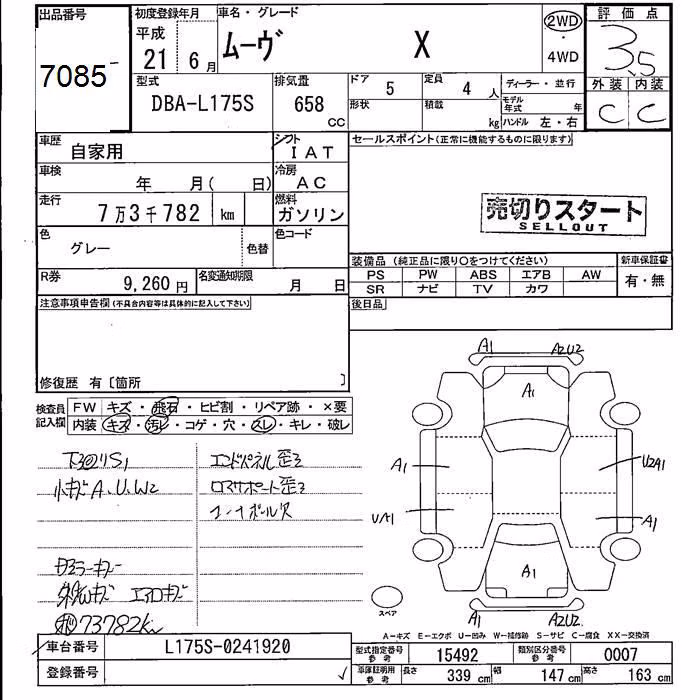 出品番号
7085
初度登録年月
平成
21年 6月
車名・グレード
ムーヴ X
2WD
・
4WD
評価点
3.5
外装 内装
C C
型式
DBA-L175S
排気量
658
CC
ドア 5
形状
定員 4 人
積載 kg
ディーラー・並行
モデル年式 年
ハンドル 左・右
車歴
自家用
シフト
IAT
車検
年 月( 日)
冷房
AC
走行
7万3千782 km
燃料
ガソリン
色
グレー
色替
色コード
R券
9,260円
名変通知期限
月 日
セールスポイント(正常に機能するものに限ります)
売切りスタート
SELLOUT
装備品 (純正品に限り○をつけてください)
新車保証書
PS PW ABS エアB AW
SR ナビ TV カワ
有・無
後日品
注意事項申告欄(不具合内容等は具体的に記入して下さい)
修復歴 有〔箇所 〕
検査員
記入欄
FW キズ・飛石・ヒビ割・リペア跡・×要
内装 キズ・汚レ・コゲ・穴・スレ・キレ・破レ
下廻りS1
小キズA.U.W2
エンドパネル歪ミ
ロアサポート歪ミ
コーナーポール欠
73782km
A1 A2U2
A1
A1
U2A1
UA1
A1
A1
A1 A2U2
スペア
A−キズ E−エクボ U−凹み W−補修跡 S−サビ C−腐食 XX−交換済
車台番号
L175S-0241920
登録番号
型式指定番号
参考
15492
類別区分番号
参考
0007
車庫証明用
参考
長さ 339 cm 幅 147 cm 高さ 163 cm